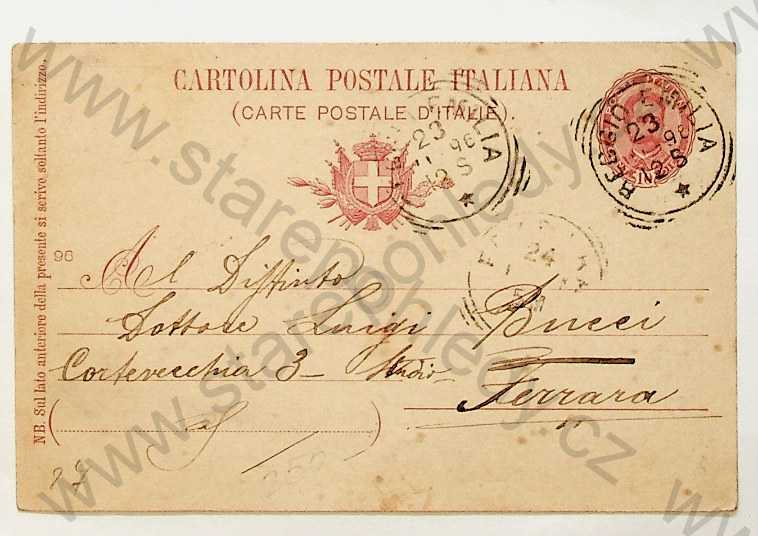 CARTOLINA POSTALE ITALIANA
(CARTE POSTALE D'ITALIE).
REGGIO EMILIA
23
96
12 S
REGGIO EMILIA
23
96
12 S
24
NB. Sul lato anteriore della presente si scrive soltanto l'indirizzo.
96
Al Distinto
Dottore Luigi Bucci
Cortevecchia 3 - Studio
Ferrara
www.starepohledy.cz